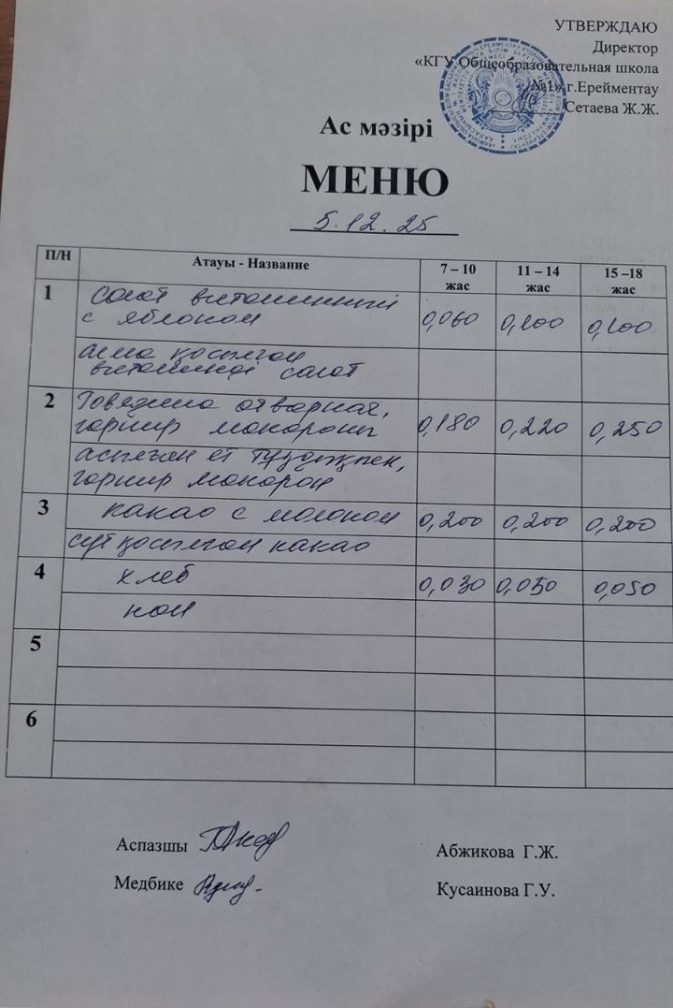 УТВЕРЖДАЮ
Директор
«КГУ Общеобразовательная школа
№1» г.Ерейментау
Сетаева Ж.Ж.
Ас мәзірі
МЕНЮ
5.12.25
П/Н Атауы - Название 7 – 10 жас 11 – 14 жас 15 –18 жас
1 Салат витаминный
с яблоком 0,060 0,100 0,100
алма қосылған
витаминді салат
2 Говядина отварная,
гарнир макароны 0,180 0,220 0,250
асылған ет
гарнир макарон
3 какао с молоком 0,200 0,200 0,200
сүт қосылған какао
4 хлеб 0,030 0,050 0,050
нан
5
6
Аспазшы Абжикова Г.Ж.
Медбике Кусаинова Г.У.